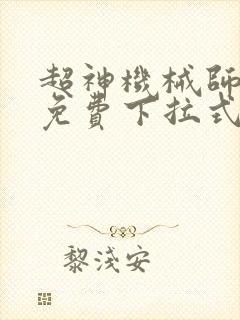 超神機械師
免費下拉式
黎淺安